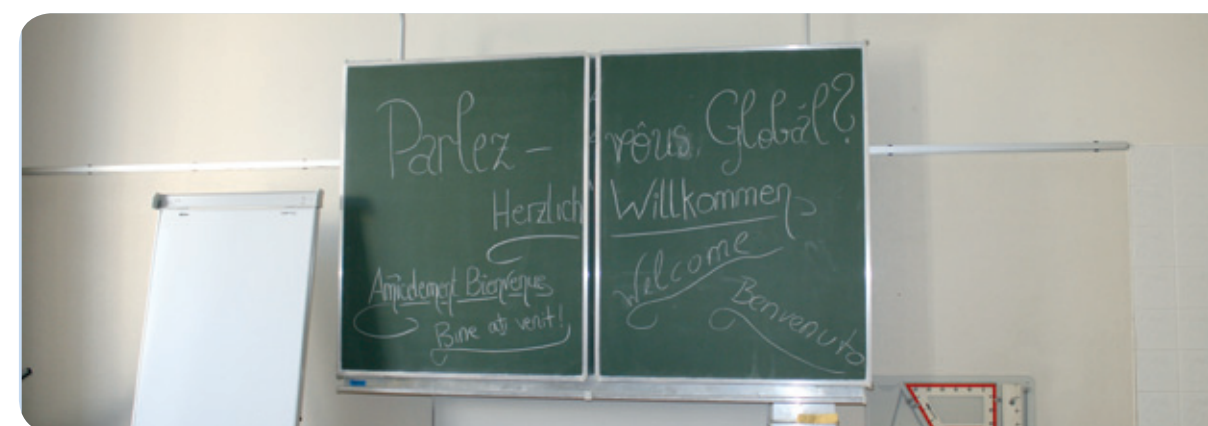 Parlez - vôus Globál?
Herzlich Willkommen
Amicalement Bienvenus
Bine ați venit!
Welcome
Benvenuto